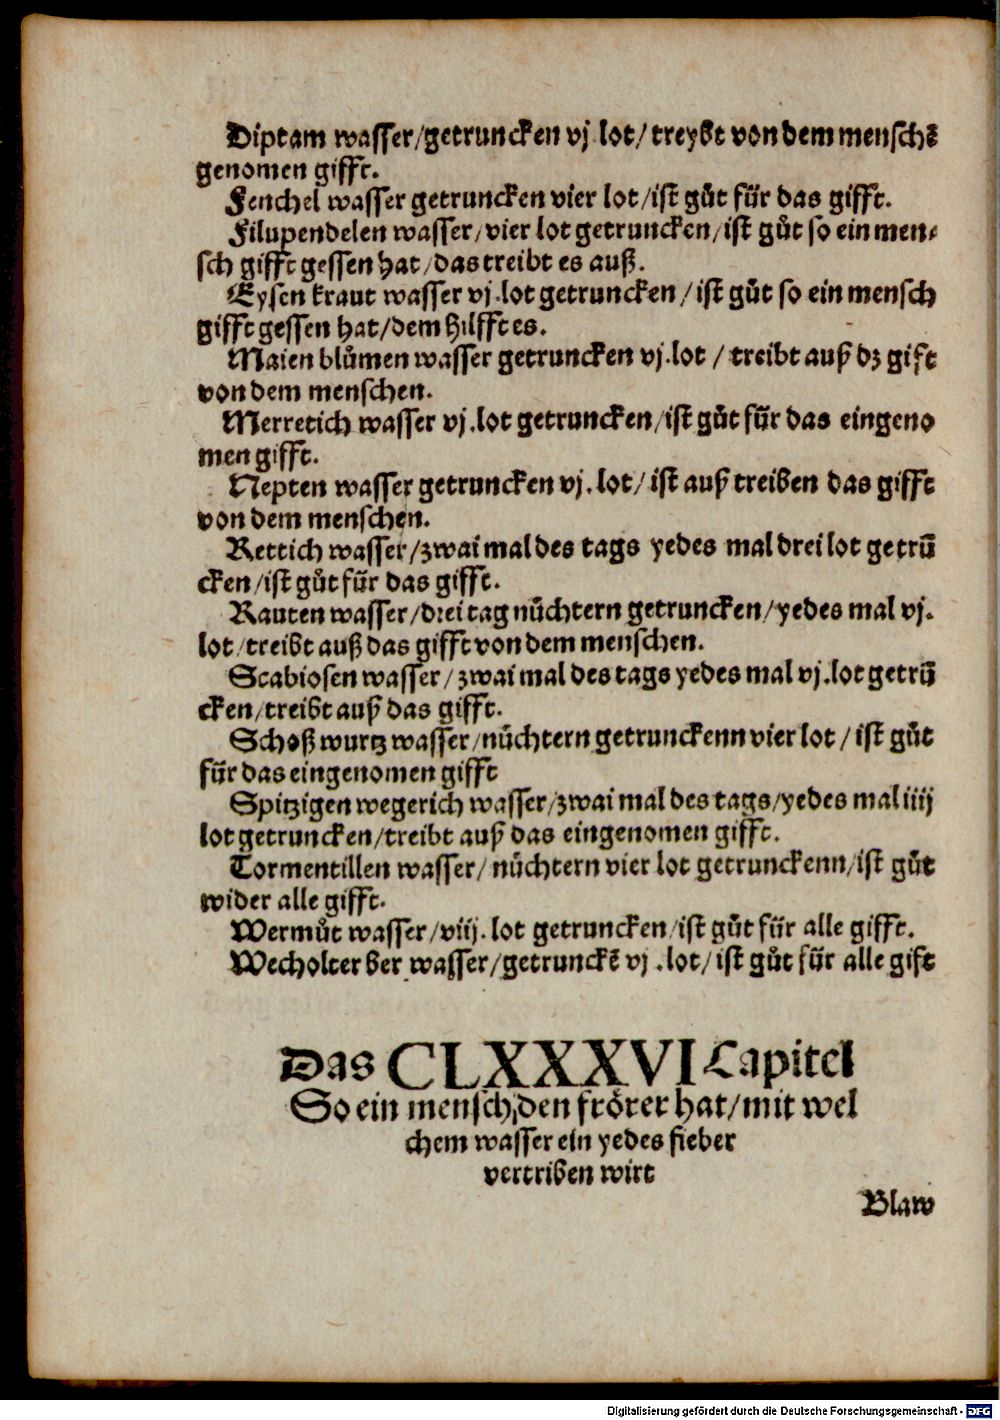 Diptam wasser/getruncken vj lot/ treybt von dem menschē
genomen gifft.
Fenchel wasser getruncken vier lot/ist gůt für das gifft.
Filupendelen wasser/vier lot getruncken/ist gůt so ein men⸗
sch gifft gessen hat/das treibt es auß.
Eysen kraut wasser vj.lot getruncken/ist gůt so ein mensch
gifft gessen hat/dem hilfft es.
Maien blůmen wasser getruncken vj.lot / treibt auß dz gift
von dem menschen.
Merretich wasser vj.lot getruncken/ist gůt für das eingeno
men gifft.
Nepten wasser getruncken vj.lot/ist auß treiben das gifft
von dem menschen.
Rettich wasser/zwai mal des tags yedes mal drei lot getrū
cken/ist gůt für das gifft.
Rauten wasser/drei tag nůchtern getruncken/yedes mal vj.
lot/treibt auß das gifft von dem menschen.
Scabiosen wasser/zwai mal des tags yedes mal vj.lot getrū
cken/treibt auß das gifft.
Schoß wurtz wasser/nůchtern getrunckenn vier lot/ist gůt
für das eingenomen gifft
Spitzigen wegerich wasser/zwai mal des tags/yedes mal iiij
lot getruncken/treibt auß das eingenomen gifft.
Tormentillen wasser/nůchtern vier lot getrunckenn/ist gůt
wider alle gifft.
Wermůt wasser/viij.lot getruncken/ist gůt für alle gifft.
Wecholter ber wasser/getrunckē vj.lot/ist gůt für alle gift
Das CLXXXVI Capitel
So ein mensch den frörer hat/mit wel
chem wasser ein yedes fieber
vertriben wirt
Blaw
Digitalisierung gefördert durch die Deutsche Forschungsgemeinschaft - DFG